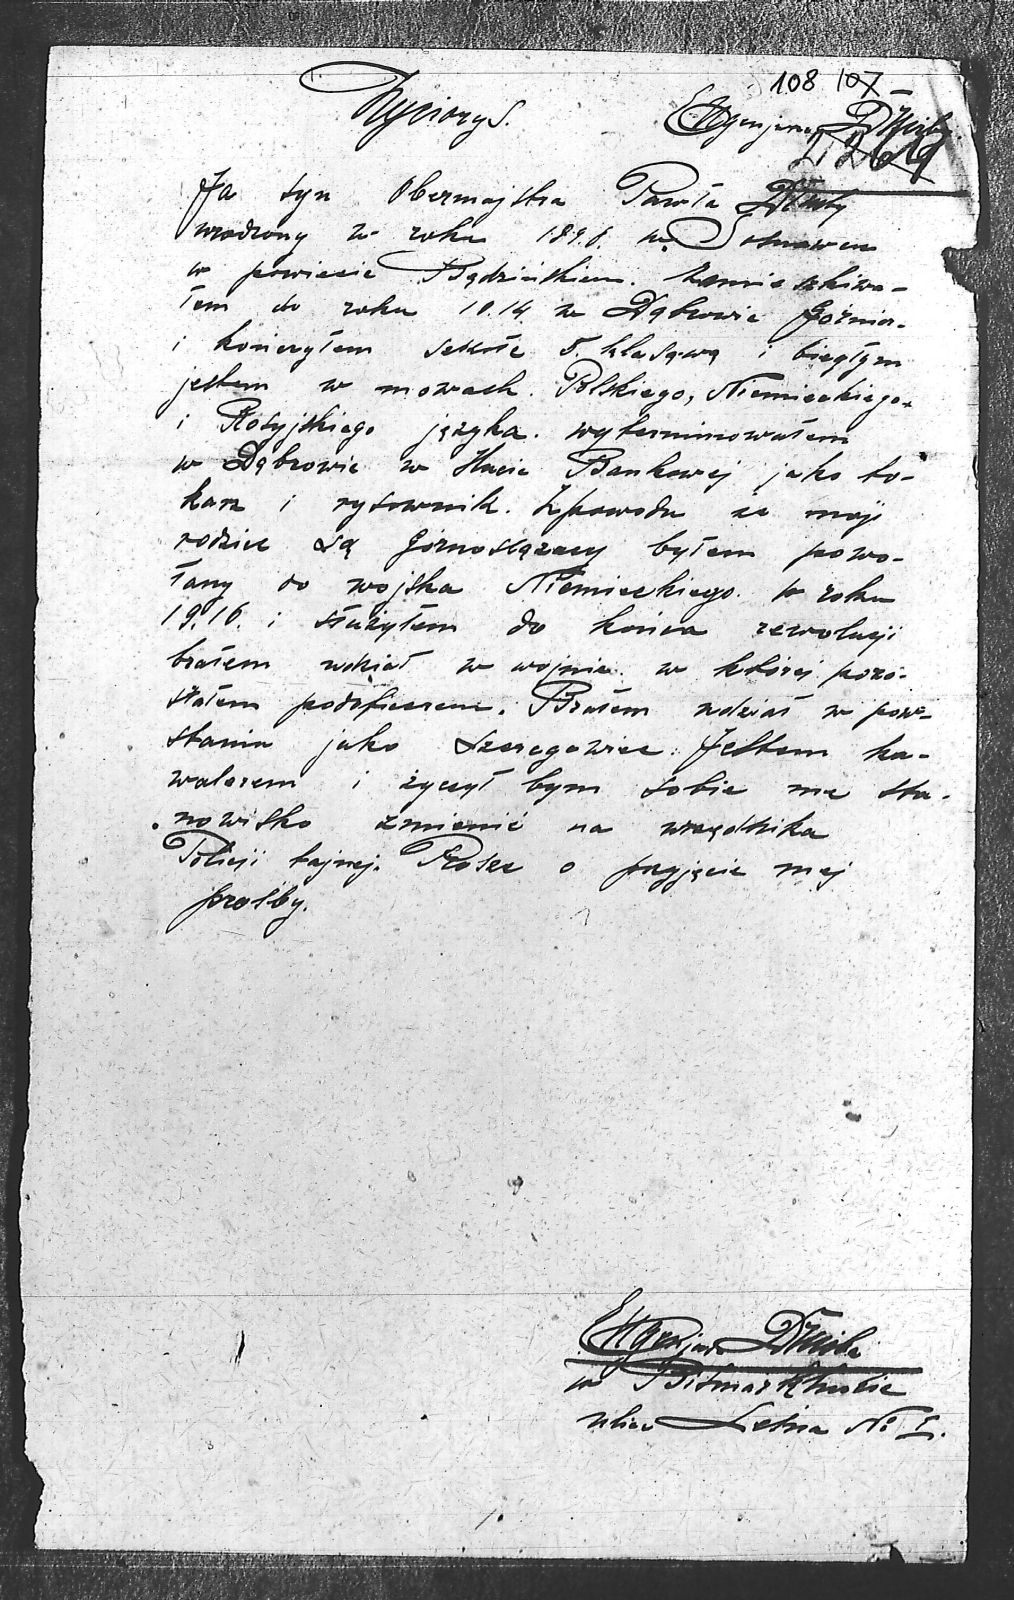 108 107
Życiorys. Eugenjusza
Ja syn Obermajstra Pawła
urodzony w roku 189.8. w Sosnowcu
w powiecie Będzińskiem. zamieszkiwa-
łem do roku 19.14. w Dąbrowie Górnicz.
i kończyłem szkołe 5. klasową i biegłym
jestem w mowach. Polskiego, Niemieckiego
i Rosyjskiego języka. wyterminowałem
w Dąbrowie w Hucie Bankowej jako to-
karz i rysownik. Zpowodu że moji
rodzice są górnoslązacy byłem powo-
łany do wojska Niemieckiego w roku
19.16. i służyłem do końca rewolucji
brałem udział w wojnie w której pozo-
stałem podoficerem. Brałem udział w pow-
staniu jako szeregowiec. Jestem ka-
walerem i życzył bym sobie me sta-
nowisko zmienić na urzędnika
Policji tajnej. Prosze o przyjęcie mej
prośby.
w Bismarkhucie
ulica Letnia No I.